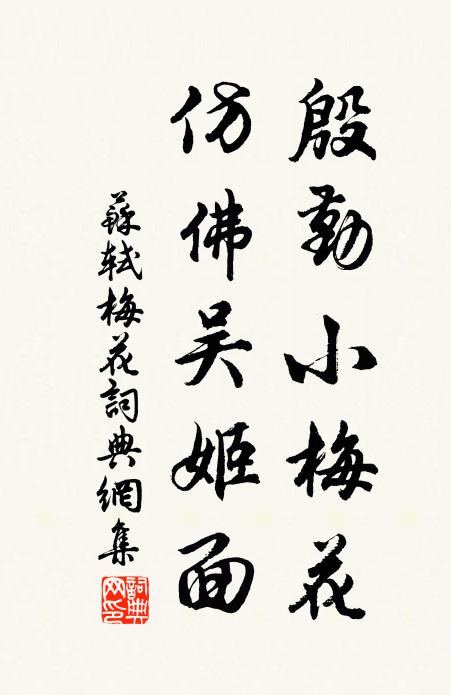 殷勤小梅花
仿佛吴姬面
蘇軾梅花詞典網集
詞典网印